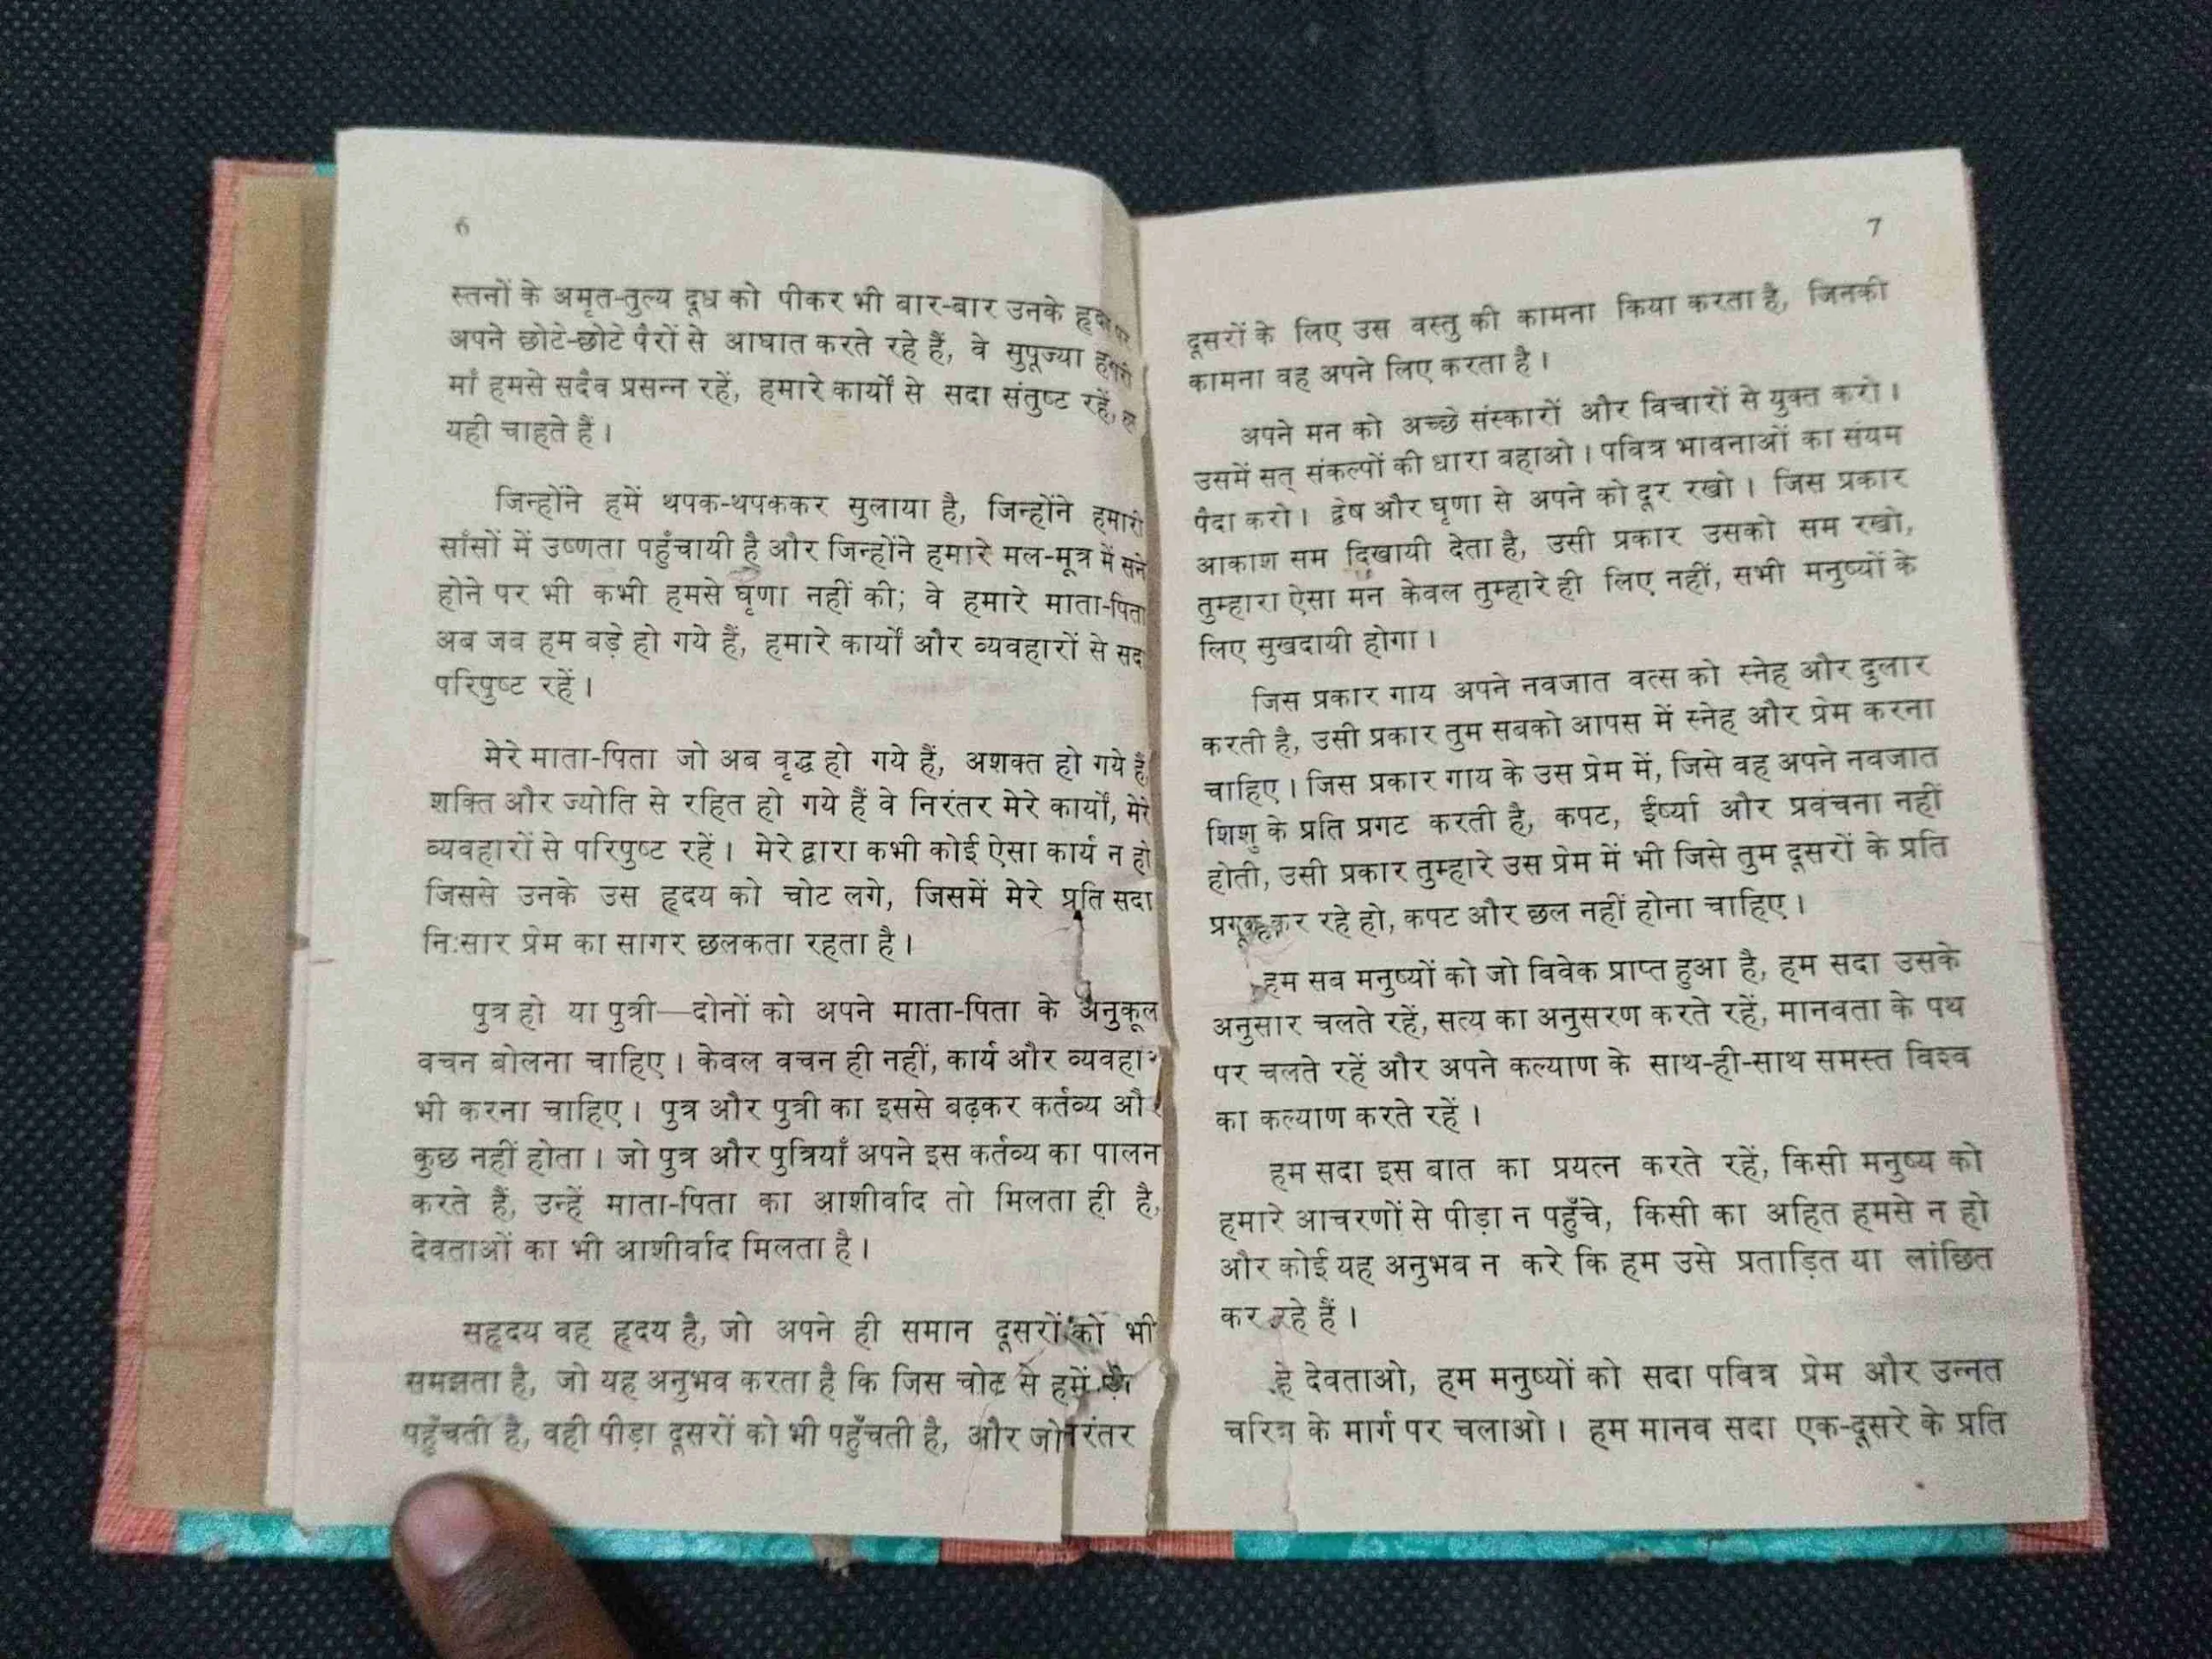 6
स्तनों के अमृत-तुल्य दूध को पीकर भी बार-बार उनके
अपने छोटे-छोटे पैरों से आघात करते रहे हैं, वे सुपूज्या
माँ हमसे सदैव प्रसन्न रहें, हमारे कार्यों से सदा संतुष्ट रहें,
यही चाहते हैं।
जिन्होंने हमें थपक-थपककर सुलाया है, जिन्होंने हमारी
साँसों में उष्णता पहुँचायी है और जिन्होंने हमारे मल-मूत्र में सने
होने पर भी कभी हमसे घृणा नहीं की; वे हमारे माता-पिता
अब जब हम बड़े हो गये हैं, हमारे कार्यों और व्यवहारों से
परिपुष्ट रहें।
मेरे माता-पिता जो अब वृद्ध हो गये हैं, अशक्त हो गये हैं
शक्ति और ज्योति से रहित हो गये हैं वे निरंतर मेरे कार्यों, मेरे
व्यवहारों से परिपुष्ट रहें। मेरे द्वारा कभी कोई ऐसा कार्य न हो
जिससे उनके उस हृदय को चोट लगे, जिसमें मेरे प्रति सदा
नि:सार प्रेम का सागर छलकता रहता है।
पुत्र हो या पुत्री—दोनों को अपने माता-पिता के अनुकूल
वचन बोलना चाहिए। केवल वचन ही नहीं, कार्य और
भी करना चाहिए। पुत्र और पुत्री का इससे बढ़कर कर्तव्य और
कुछ नहीं होता। जो पुत्र और पुत्रियाँ अपने इस कर्तव्य का पालन
करते हैं, उन्हें माता-पिता का आशीर्वाद तो मिलता ही है,
देवताओं का भी आशीर्वाद मिलता है।
सहृदय वह हृदय है, जो अपने ही समान दूसरों को भी
समझता है, जो यह अनुभव करता है कि जिस चोट से हमें
पहुँचती है, वही पीड़ा दूसरों को भी पहुँचती है, और जो
7
दूसरों के लिए उस वस्तु की कामना किया करता है, जिनकी
कामना वह अपने लिए करता है।
अपने मन को अच्छे संस्कारों और विचारों से युक्त करो।
उसमें सत् संकल्पों की धारा बहाओ। पवित्र भावनाओं का संयम
पैदा करो। द्वेष और घृणा से अपने को दूर रखो। जिस प्रकार
आकाश सम दिखायी देता है, उसी प्रकार उसको सम रखो,
तुम्हारा ऐसा मन केवल तुम्हारे ही लिए नहीं, सभी मनुष्यों के
लिए सुखदायी होगा।
जिस प्रकार गाय अपने नवजात वत्स को स्नेह और दुलार
करती है, उसी प्रकार तुम सबको आपस में स्नेह और प्रेम करना
चाहिए। जिस प्रकार गाय के उस प्रेम में, जिसे वह अपने नवजात
शिशु के प्रति प्रगट करती है, कपट, ईर्ष्या और प्रवंचना नहीं
होती, उसी प्रकार तुम्हारे उस प्रेम में भी जिसे तुम दूसरों के प्रति
कर रहे हो, कपट और छल नहीं होना चाहिए।
हम सब मनुष्यों को जो विवेक प्राप्त हुआ है, हम सदा उसके
अनुसार चलते रहें, सत्य का अनुसरण करते रहें, मानवता के पथ
पर चलते रहें और अपने कल्याण के साथ-ही-साथ समस्त विश्व
का कल्याण करते रहें।
हम सदा इस बात का प्रयत्न करते रहें, किसी मनुष्य को
हमारे आचरणों से पीड़ा न पहुँचे, किसी का अहित हमसे न हो
और कोई यह अनुभव न करे कि हम उसे प्रताड़ित या लांछित
कर रहे हैं।
हे देवताओ, हम मनुष्यों को सदा पवित्र प्रेम और उन्नत
चरित्र के मार्ग पर चलाओ। हम मानव सदा एक-दूसरे के प्रति